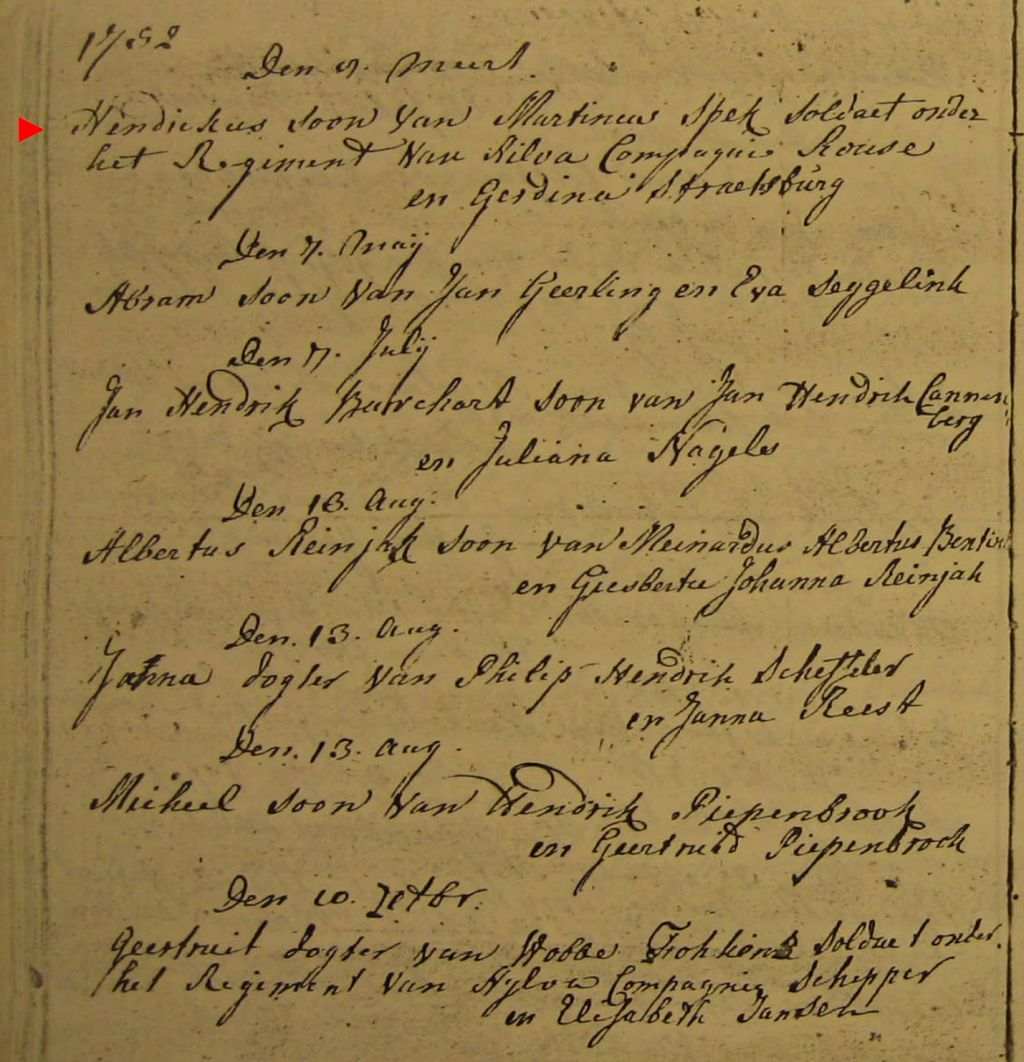 1782
Den 9. Meert
Hendrickus soon van Martinus Spek soldaet onder
het Regiment van Hilva Compagnie Rouse
en Gerdina Straetsburg
Den 7. Maij
Abram soon van Jan Geerling en Eva Seggelink
Den 7. Julij
Jan Hendrik Burchart soon van Jan Hendrik Cannen
berg
en Juliana Nagels
Den 13. Aug.
Albertus Reinjak soon van Meinardus Albertus Bentin
en Giesberta Johanna Reinjak
Den. 13. Aug.
Janna dogter van Philip Hendrik Scheffeler
en Janna Reest
Den. 13. Aug.
Micheel soon van Hendrik Piepenbrook
en Geertruid Piepenbrock
Den 10.
Geertruit dogter van Wobbe soldaet onder
het Regiment van Hylva Compagnie Schepper
en Elisabeth Jansen